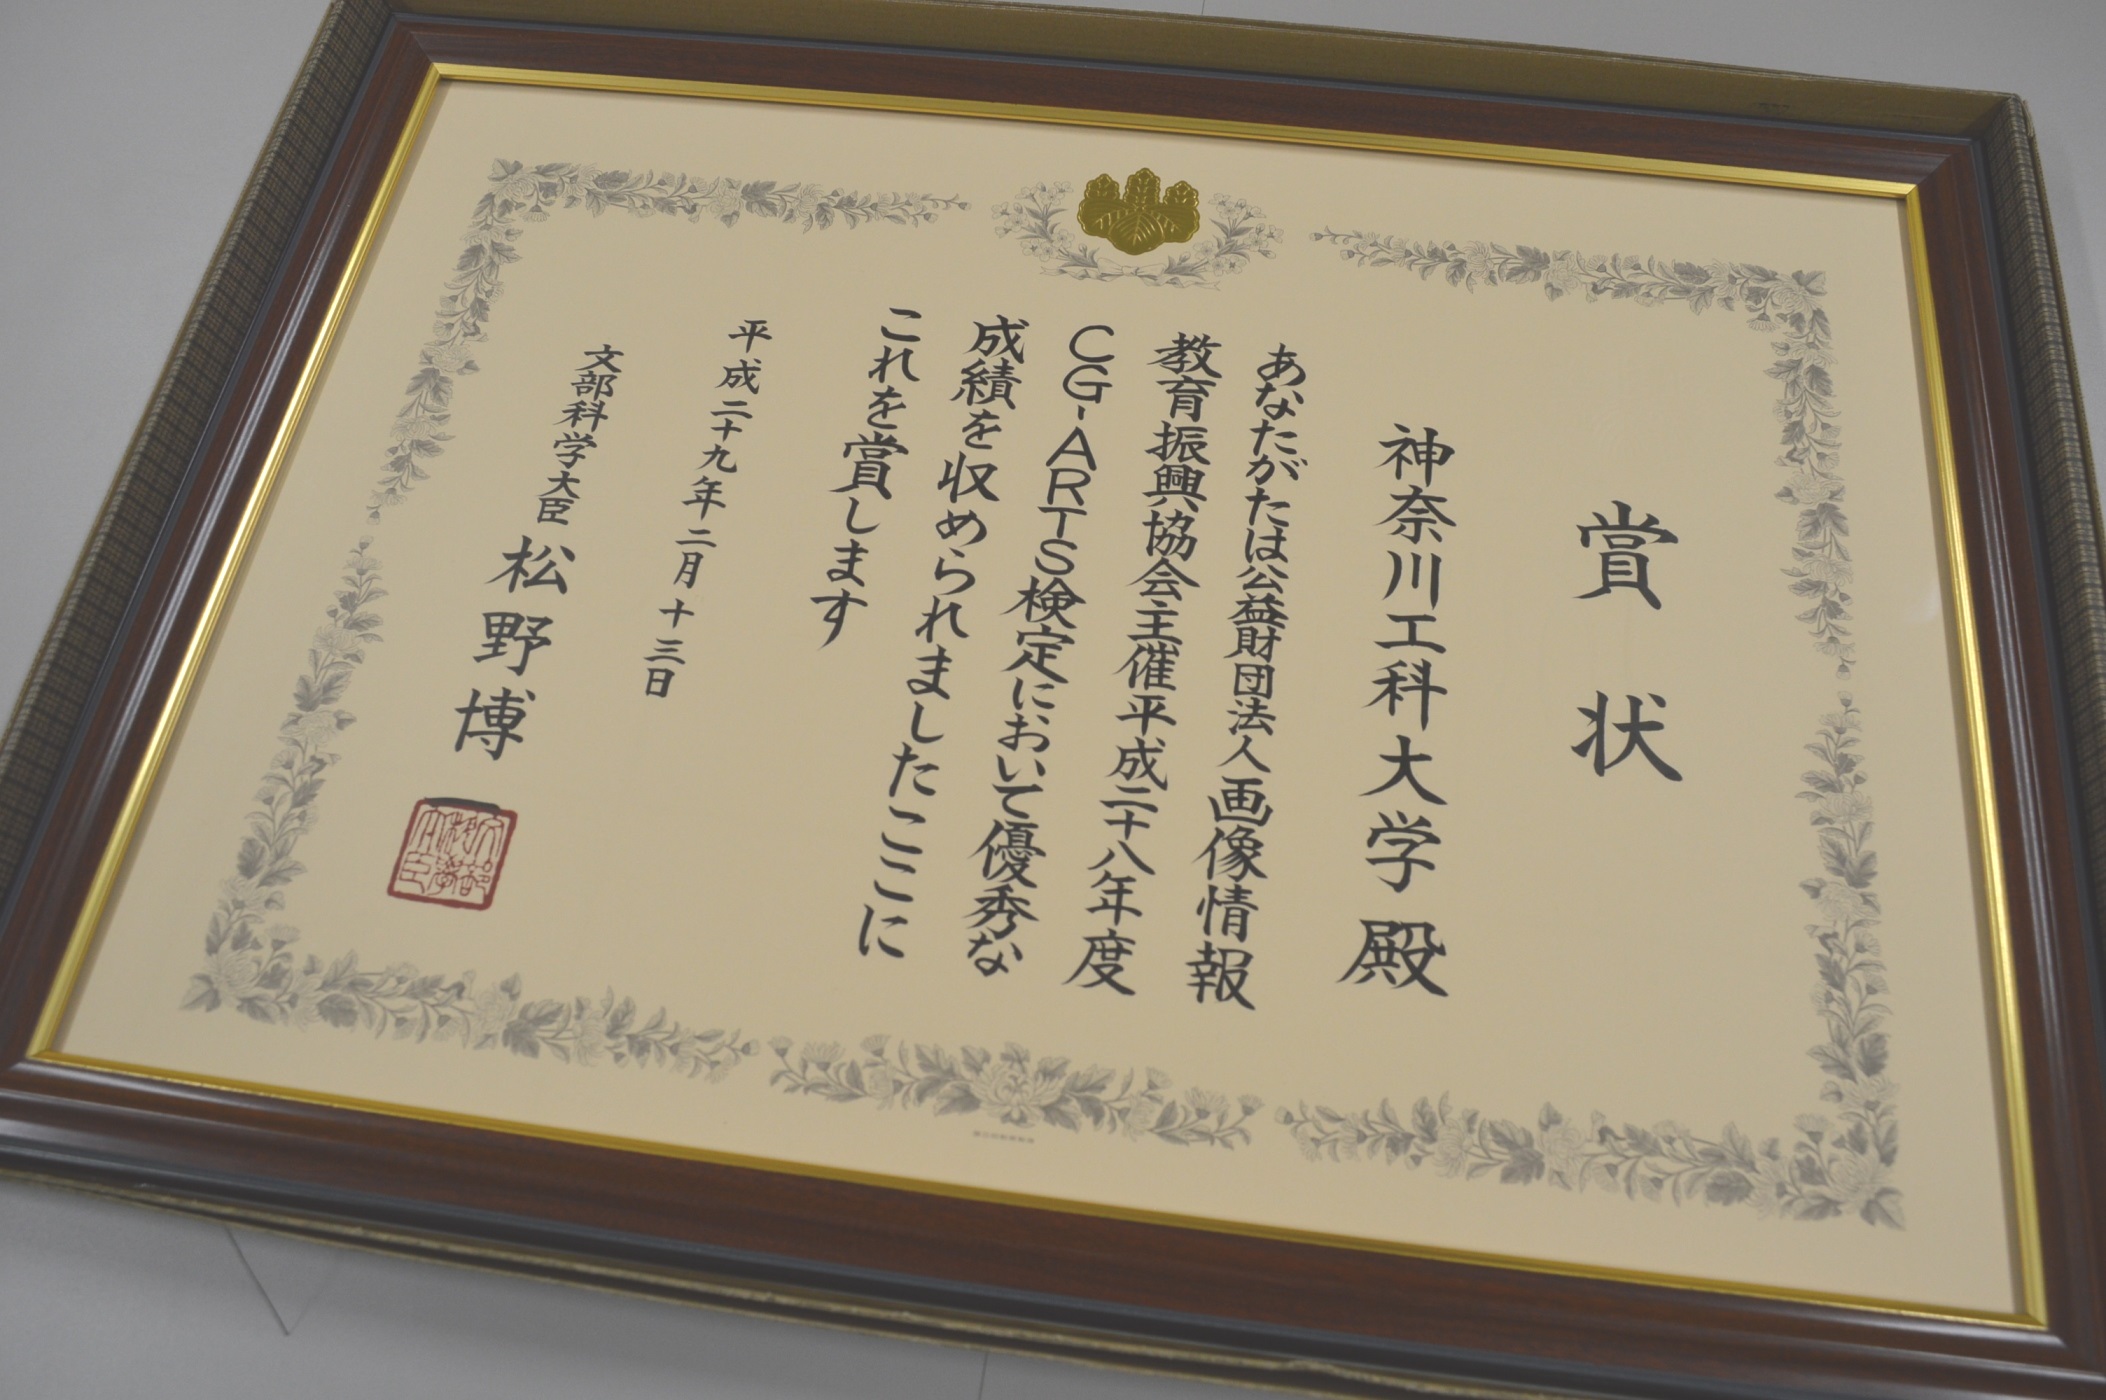 賞状
神奈川工科大学殿
あなたがたは公益財団法人画像情報
教育振興協会主催平成二十八年度
CG-ARTS検定において優秀な
成績を収められましたここに
これを賞します
平成二十九年二月十三日
文部科学大臣 松野博